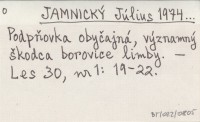 JAMNICKÝ Július 1974...
Podpňovka obyčajná, významný
škodca borovice limby. —
Les 30, nr 1: 19-22.